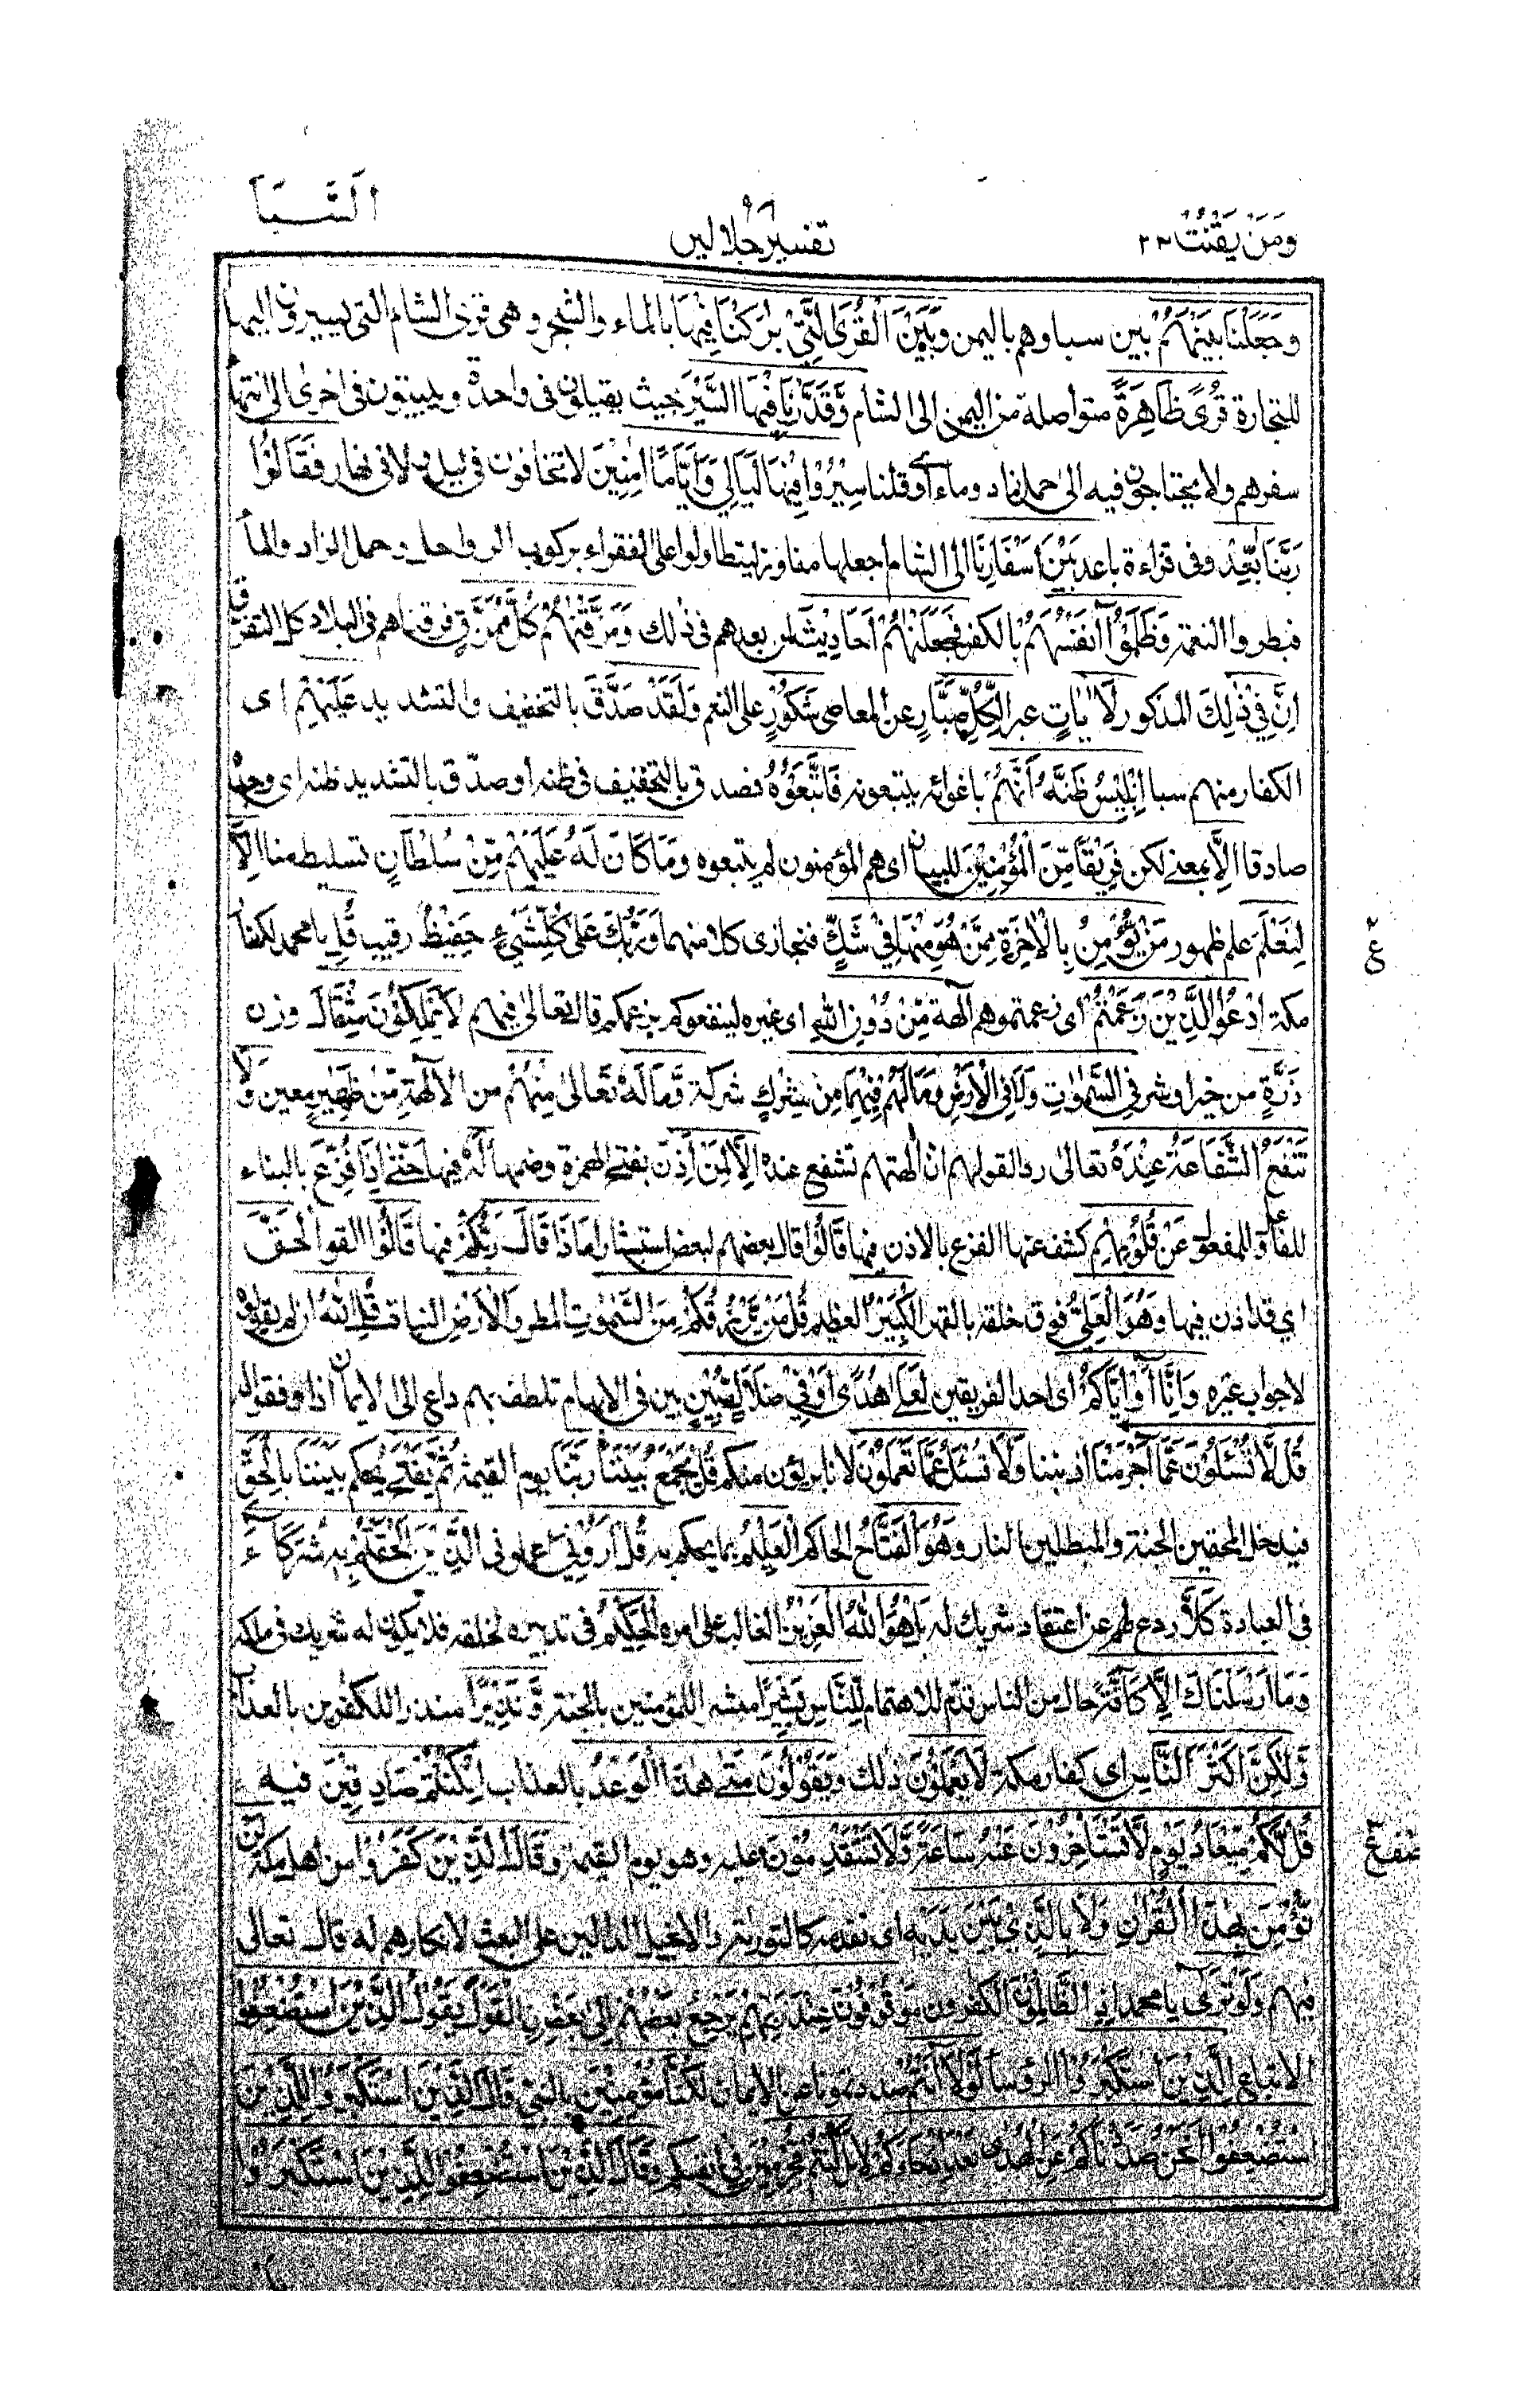 ومن يقنت ٢٢
تفسير جلالين
٩٦
السبا
وَجَعَلْنَا بَيْنَهُمْ بين سبا وهم باليمن وَبَيْنَ الْقُرَى الَّتِيْ بٰرَكْنَا فِيْهَا بالماء والشجر وهى قرى الشام التى يسيرون اليها
للتجارة قُرًى ظَاهِرَةً متواصلة من اليمن الى الشام وَّقَدَّرْنَا فِيْهَا السَّيْرَ بحيث يقيلون فى واحدة ويبيتون فى اخرى الى انتهاء
سفرهم ولا يحتاجون فيه الى حمل زاد وماء اى وقلنا سِيْرُوْا فِيْهَا لَيَالِيَ وَاَيَّامًا اٰمِنِيْنَ لا تخافون فى ليل ولا فى نهار فَقَالُوْا
رَبَّنَا بَعِّدْ وفى قراءة باعد بَيْنَ اَسْفَارِنَا الى الشام اجعلها مفاوز ليتطاولوا على الفقراء بركوب الرواحل وحمل الزاد والماء
فبطروا النعمة وَظَلَمُوْآ اَنْفُسَهُمْ بالكفر فَجَعَلْنٰهُمْ اَحَادِيْثَ لمن بعدهم فى ذلك وَمَزَّقْنٰهُمْ كُلَّ مُمَزَّقٍ فرقناهم فى البلاد كل التفريق
اِنَّ فِيْ ذٰلِكَ المذكور لَاٰيَاتٍ عبرا لِّكُلِّ صَبَّارٍ عن المعاصى شَكُوْرٍ على النعم وَلَقَدْ صَدَّقَ بالتخفيف والتشديد عَلَيْهِمْ اى
الكفار منهم سبا اِبْلِيْسُ ظَنَّهٗ اَنَّهُمْ باغوائه يتبعونه فَاتَّبَعُوْهُ فصدق بالتخفيف فى ظنه او صدّق بالتشديد ظنه اى وجده
صادقا اِلَّا بمعنى لكن فَرِيْقًا مِّنَ الْمُؤْمِنِيْنَ للبيان اى هم المؤمنون لم يتبعوه وَمَا كَانَ لَهٗ عَلَيْهِمْ مِّنْ سُلْطَانٍ تسليط منا اِلَّا
لِنَعْلَمَ علم ظهور مَنْ يُّؤْمِنُ بِالْاٰخِرَةِ مِمَّنْ هُوَ مِنْهَا فِيْ شَكٍّ فنجازى كلا منهما وَرَبُّكَ عَلٰى كُلِّ شَيْءٍ حَفِيْظٌ رقيب قُلِ يا محمد لكفار
مكة ادْعُوا الَّذِيْنَ زَعَمْتُمْ اى زعمتموهم آلهة مِّنْ دُوْنِ اللهِ اى غيره لينفعوكم بزعمكم قال تعالى فيهم لَا يَمْلِكُوْنَ مِثْقَالَ وزن
ذَرَّةٍ من خير او شر فِي السَّمٰوٰتِ وَلَا فِي الْاَرْضِ وَمَا لَهُمْ فِيْهِمَا مِنْ شِرْكٍ شركة وَّمَا لَهٗ تَعَالٰى مِنْهُمْ من الآلهة مِّنْ ظَهِيْرٍ معين وَلَا
تَنْفَعُ الشَّفَاعَةُ عِنْدَهٗ تعالى ردا لقولهم ان آلهتهم تشفع عنده اِلَّا لِمَنْ اَذِنَ بفتح الهمزة وضمها لَهٗ فيها حَتّٰى اِذَا فُزِّعَ بالبناء
للفاعل وللمفعول عَنْ قُلُوْبِهِمْ كشف عنها الفزع بالاذن فيها قَالُوْا قال بعضهم لبعض استبشارا مَاذَا قَالَ رَبُّكُمْ فيها قَالُوا القول الْحَقَّ
اى قد اذن فيها وَهُوَ الْعَلِيُّ فوق خلقه بالقهر الْكَبِيْرُ العظيم قُلْ مَنْ يَّرْزُقُكُمْ مِّنَ السَّمٰوٰتِ المطر وَالْاَرْضِ النبات قُلِ اللهُ ان لم يقولوه
لا جواب غيره وَاِنَّآ اَوْ اِيَّاكُمْ اى احد الفريقين لَعَلٰى هُدًى اَوْ فِيْ ضَلَالٍ مُّبِيْنٍ بين فى الابهام تلطف بهم داع الى الايمان اذا وفقوا له
قُلْ لَّا تُسْئَلُوْنَ عَمَّآ اَجْرَمْنَا اذنبنا وَلَا نُسْئَلُ عَمَّا تَعْمَلُوْنَ لانا بريئون منكم قُلْ يَجْمَعُ بَيْنَنَا رَبُّنَا يوم القيمة ثُمَّ يَفْتَحُ يحكم بَيْنَنَا بِالْحَقِّ
فيدخل المحقين الجنة والمبطلين النار وَهُوَ الْفَتَّاحُ الحاكم الْعَلِيْمُ بما يحكم به قُلْ اَرُوْنِيَ اعلمونى الَّذِيْنَ اَلْحَقْتُمْ بِهٖ شُرَكَآءَ
فى العبادة كَلَّا ردع لهم عن اعتقاد شريك له بَلْ هُوَ اللهُ الْعَزِيْزُ الغالب على امره الْحَكِيْمُ فى تدبيره لخلقه فلا يكون له شريك فى ملكه
وَمَآ اَرْسَلْنَاكَ اِلَّا كَآفَّةً حال من الناس قدم للاهتمام لِّلنَّاسِ بَشِيْرًا مبشرا للمؤمنين بالجنة وَّنَذِيْرًا منذرا للكفرين بالعذاب
وَّلٰكِنَّ اَكْثَرَ النَّاسِ اى كفار مكة لَا يَعْلَمُوْنَ ذلك وَيَقُوْلُوْنَ مَتٰى هٰذَا الْوَعْدُ بالعذاب اِنْ كُنْتُمْ صَادِقِيْنَ فيه
قُلْ لَّكُمْ مِّيْعَادُ يَوْمٍ لَّا تَسْتَأْخِرُوْنَ عَنْهُ سَاعَةً وَّلَا تَسْتَقْدِمُوْنَ عليه وهو يوم القيمة وَقَالَ الَّذِيْنَ كَفَرُوْا من اهل مكة لَنْ
نُّؤْمِنَ بِهٰذَا الْقُرْاٰنِ وَلَا بِالَّذِيْ بَيْنَ يَدَيْهِ اى تقدمه كالتورية والانجيل الدالين على البعث لانكارهم له قال تعالى
فيهم وَلَوْ تَرٰٓى يا محمد اِذِ الظَّالِمُوْنَ الكفرون مَوْقُوْفُوْنَ عِنْدَ رَبِّهِمْ يَرْجِعُ بَعْضُهُمْ اِلٰى بَعْضِ ِ۟الْقَوْلَ يَقُوْلُ الَّذِيْنَ اسْتُضْعِفُوْا
الاتباع لِلَّذِيْنَ اسْتَكْبَرُوْا الرؤسآء لَوْلَآ اَنْتُمْ صددتمونا عن الايمان لَكُنَّا مُؤْمِنِيْنَ بالنبى قَالَ الَّذِيْنَ اسْتَكْبَرُوْا لِلَّذِيْنَ
اسْتُضْعِفُوْآ اَنَحْنُ صَدَدْنَاكُمْ عَنِ الْهُدٰى بَعْدَ اِذْ جَآءَكُمْ لا بَلْ كُنْتُمْ مُّجْرِمِيْنَ فى انفسكم وَقَالَ الَّذِيْنَ اسْتُضْعِفُوْا لِلَّذِيْنَ اسْتَكْبَرُوْا